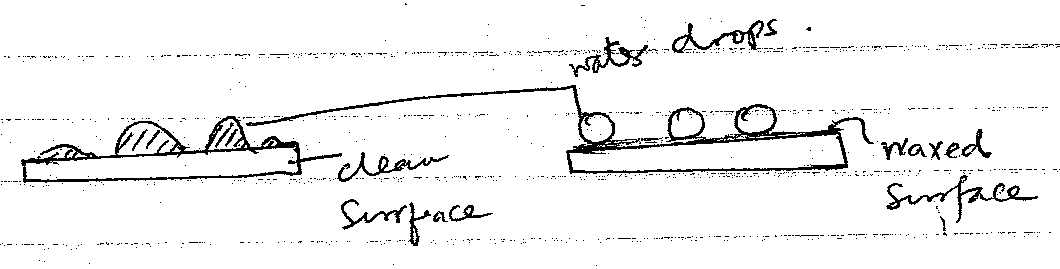 water drops.
clean
surface
waxed
surface